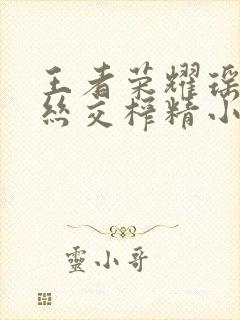 王者荣耀瑶
丝交榨精小
靈小哥